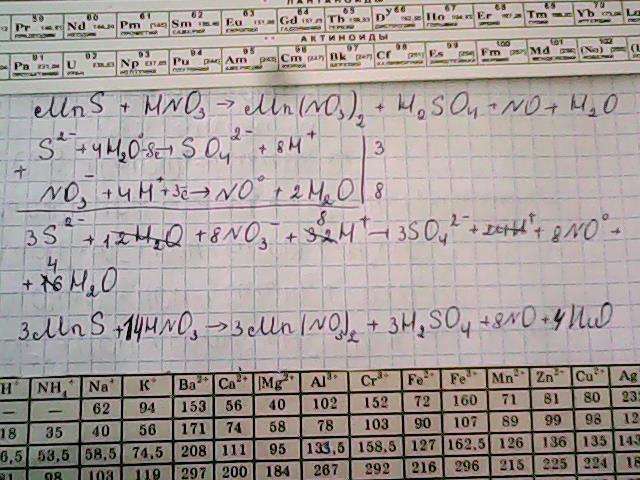 ЛАНТАНОИДЫ
59 60 61 62 63 64 65 66 67 68 69 70
Pr Nd Pm Sm Eu Gd Tb Dy Ho Er Tm Yb
АКТИНОИДЫ
91 92 93 94 95 96 97 98 99 100 101 102
Pa U Np Pu Am Cm Bk Cf Es Fm Md (No)
MnS + HNO₃ → Mn(NO₃)₂ + H₂SO₄ + NO + H₂O
S²⁻ + 4H₂O - 8e → SO₄²⁻ + 8H⁺ | 3
+
NO₃⁻ + 4H⁺ + 3e → NO⁰ + 2H₂O | 8
3S²⁻ + 12H₂O + 8NO₃⁻ + 32H⁺ 8 → 3SO₄²⁻ + 24H⁺ + 8NO⁰ +
+ 16 4 H₂O
3MnS + 14HNO₃ → 3Mn(NO₃)₂ + 3H₂SO₄ + 8NO + 4H₂O
H⁺ NH₄⁺ Na⁺ K⁺ Ba²⁺ Ca²⁺ Mg²⁺ Al³⁺ Cr³⁺ Fe²⁺ Fe³⁺ Mn²⁺ Zn²⁺ Cu²⁺ Ag
— — 62 94 153 56 40 102 152 72 160 71 81 80
18 35 40 56 171 74 58 78 103 90 107 89 99 98
6,5 53,5 58,5 74,5 208 111 95 133,5 158,5 127 162,5 126 136 135
98 103 119 297 200 184 267 292 216 296 215 225 224